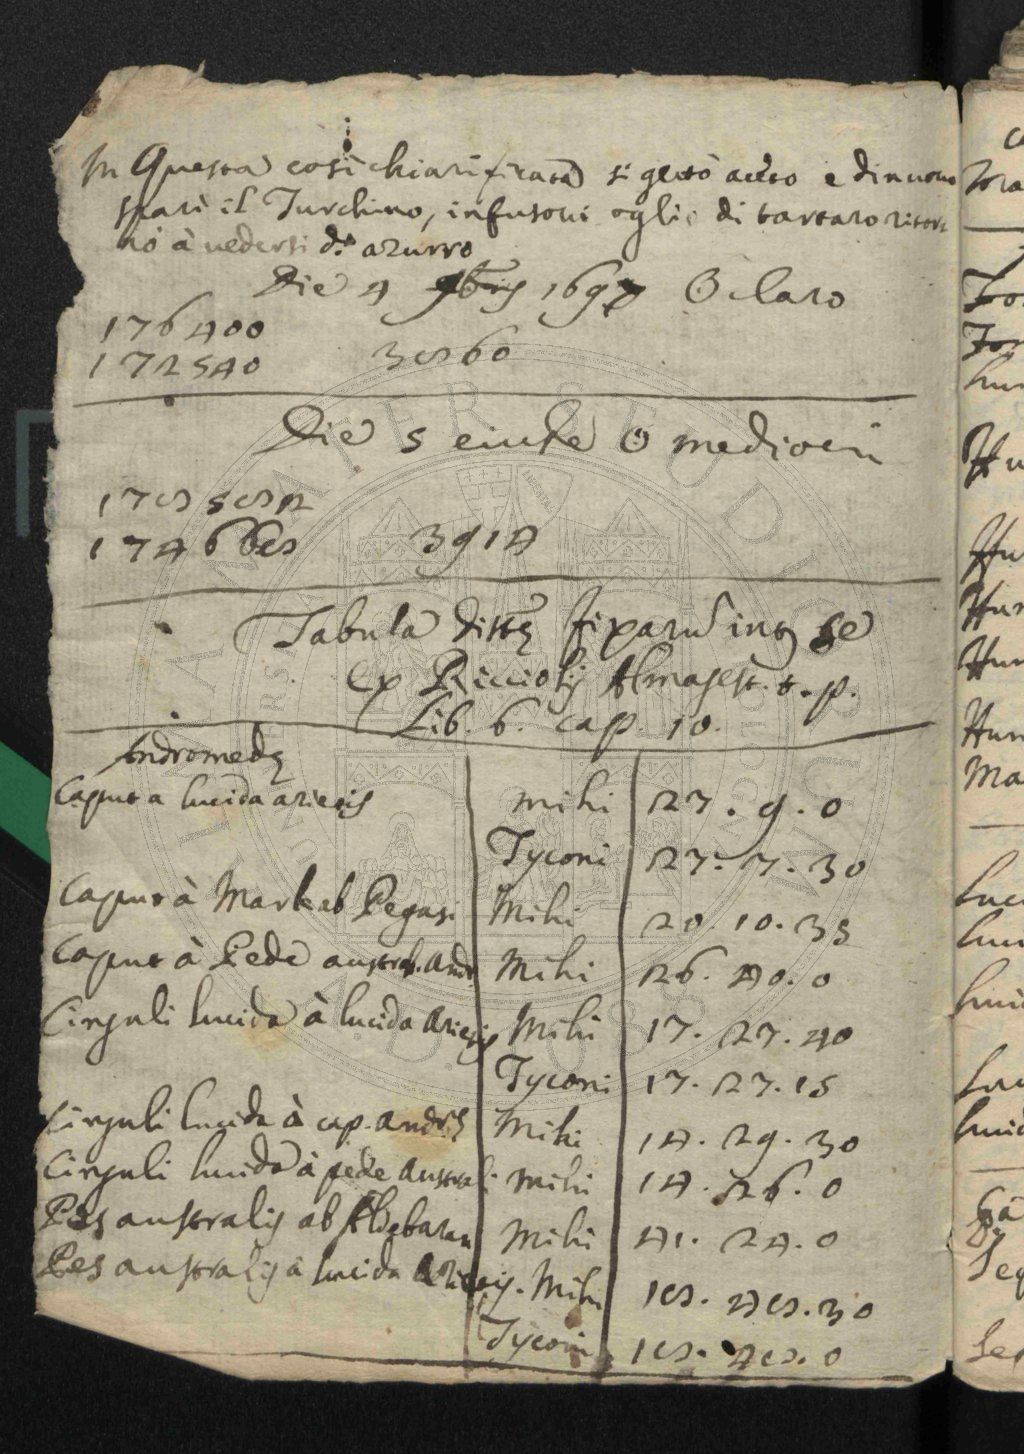 In Questa così chiarificata si gettò aceto e di nuovo
sparì il Turchino, infusovi oglio di tartaro ritor-
nò à vedersi d.º azurro
Die 4 9bris 1697 ☉ claro
176400
172540 3860
Die 5 eiusde ☉ mediocri
178582
174668 3914
Tabula distę fixarū intę se
ex Ricciolij Almagest. t. p.
Lib. 6. cap. 10.
Andromedę
Caput a lucida arietis mihi 27. 9. 0
Tyconi 27. 7. 30
Caput à Markab Pegasi Mihi 20. 10. 35
Caput à Pede austral. Andr. Mihi 26. 40. 0
Cinguli lucida à lucida Arietis Mihi 17. 27. 40
Tyconi 17. 27. 15
Cinguli lucida à cap. Andrę Mihi 14. 29. 30
Cinguli lucida à pede Australi mihi 14. 26. 0
Pes australis ab Aldebaran Mihi 41. 24. 0
Pes australis à lucida Arietis. Mihi 18. 48. 30
Tyconi 18. 48. 0